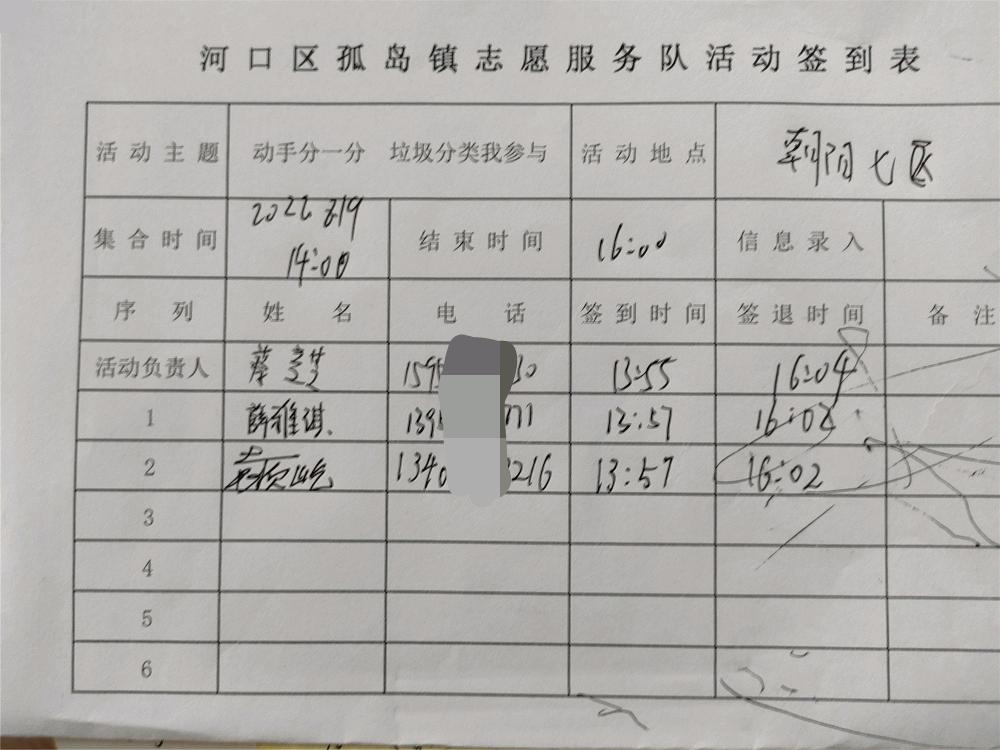 河口区孤岛镇志愿服务队活动签到表
活动主题 动手分一分 垃圾分类我参与 活动地点 朝阳七区
集合时间 2022 8.19 14:00 结束时间 16:00 信息录入
序列 姓名 电话 签到时间 签退时间 备注
活动负责人 13:55 16:04
1 薛雅琪 13:57 16:02
2 1340 216 13:57 16:02
3
4
5
6